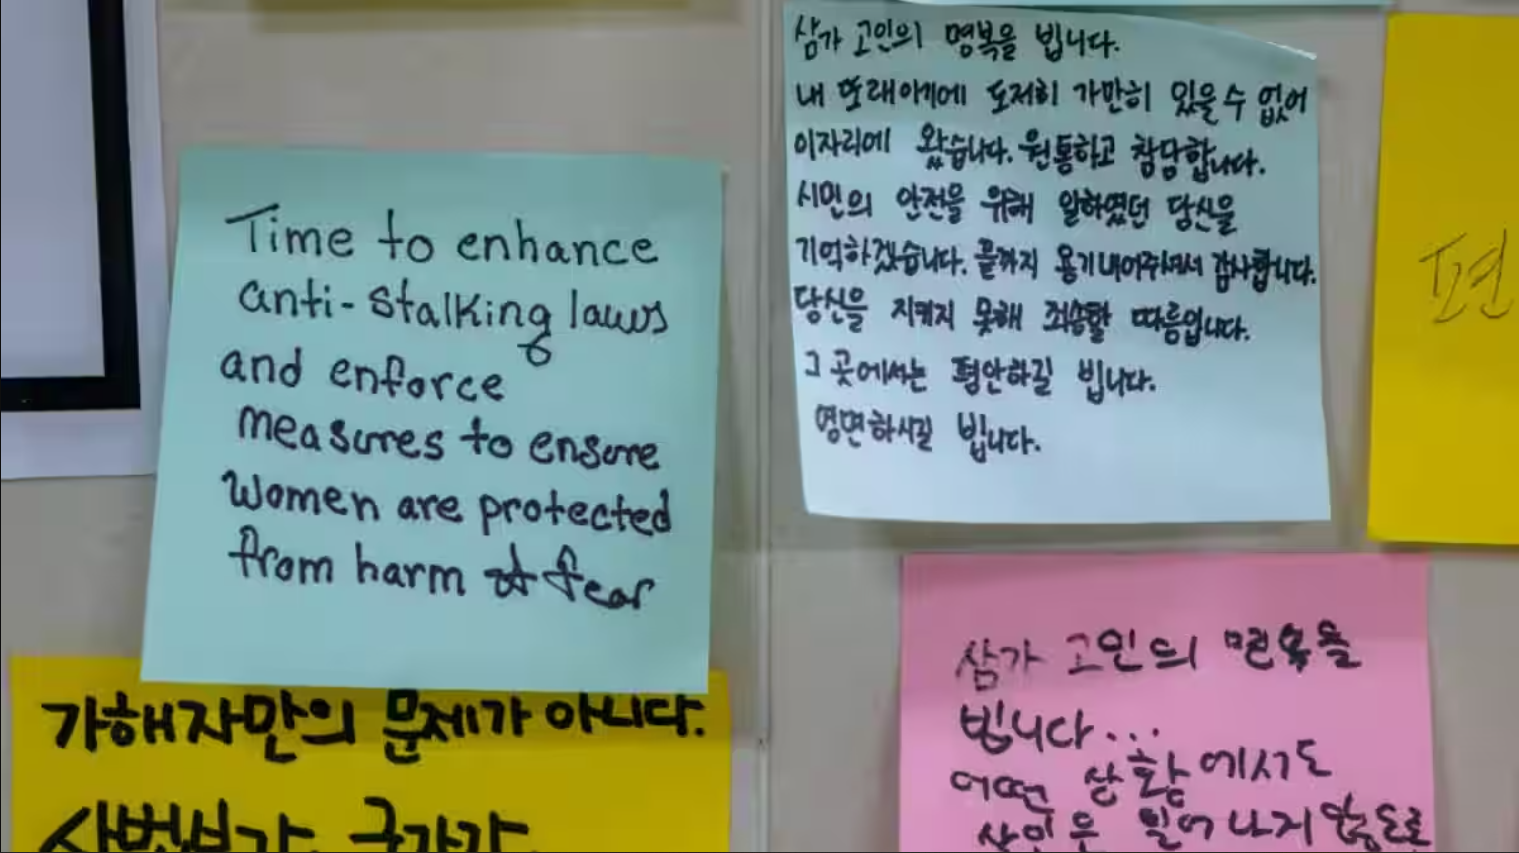 Time to enhance
anti-stalking laws
and enforce
measures to ensure
women are protected
from harm & fear
삼가 고인의 명복을 빕니다.
내 또래이기에 도저히 가만히 있을 수 없어
이자리에 왔습니다. 원통하고 참담합니다.
시민의 안전을 위해 일하였던 당신을
기억하겠습니다. 끝까지 용기내어주셔서 감사합니다.
당신을 지키지 못해 죄송할 따름입니다.
그 곳에서는 평안하길 빕니다.
영면하시길 빕니다.
편
가해자만의 문제가 아니다.
사법부가, 국가가
삼가 고인의 명복을
빕니다...
어떤 상황에서도
살인은 일어나지 않도록